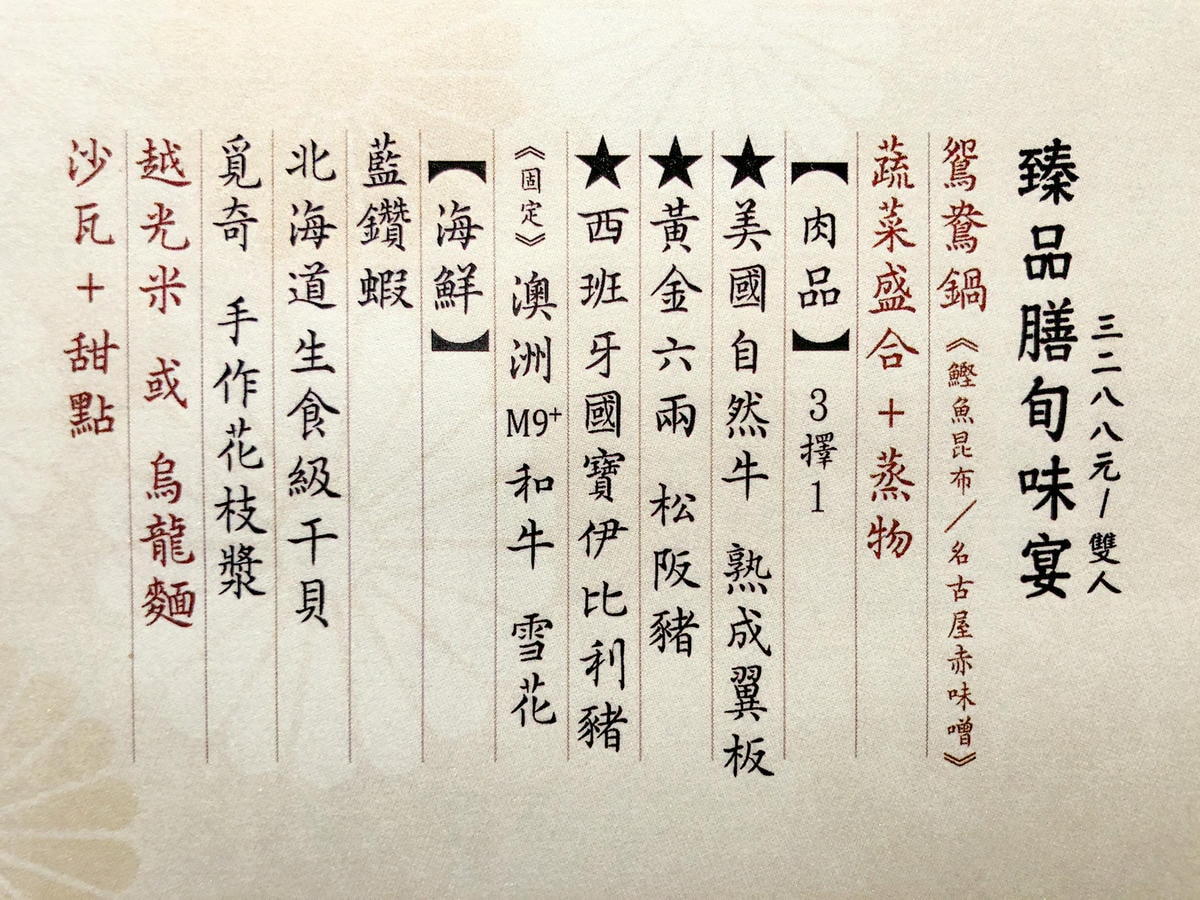 三二八八元/雙人
臻品膳旬味宴
鴛鴦鍋《鰹魚昆布/名古屋赤味噌》
蔬菜盛合+蒸物
【肉品】3擇1
★美國自然牛 熟成翼板
★黃金六兩 松阪豬
★西班牙國寶伊比利豬
《固定》澳洲M9+和牛 雪花
【海鮮】
藍鑽蝦
北海道生食級干貝
覓奇 手作花枝漿
越光米 或 烏龍麵
沙瓦+甜點